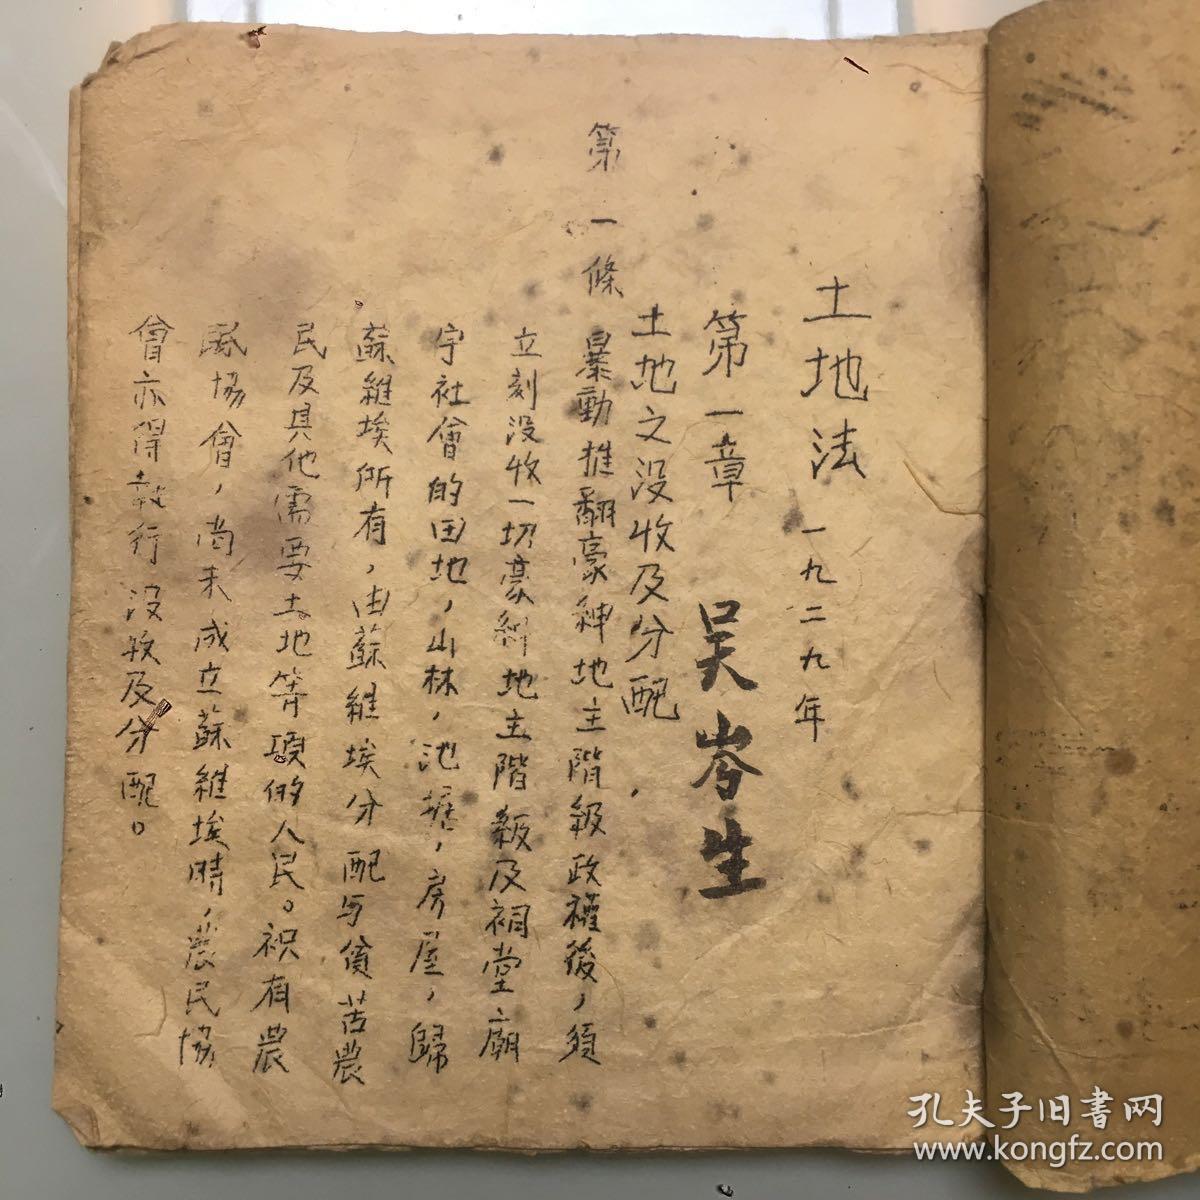 土地法 一九二九年
第一章 吴岑生
土地之没收及分配
第一條 暴動推翻豪紳地主階級政權後，須
立刻没收一切豪紳地主階級及祠堂廟
宇社會的田地，山林，池塘，房屋，歸
蘇維埃所有，由蘇維埃分配与貧苦農
民及其他需要土地等項的人民。祇有農
民協會，尚未成立蘇維埃時，農民協
會亦得執行没收及分配。
孔夫子旧书网
www.kongfz.com